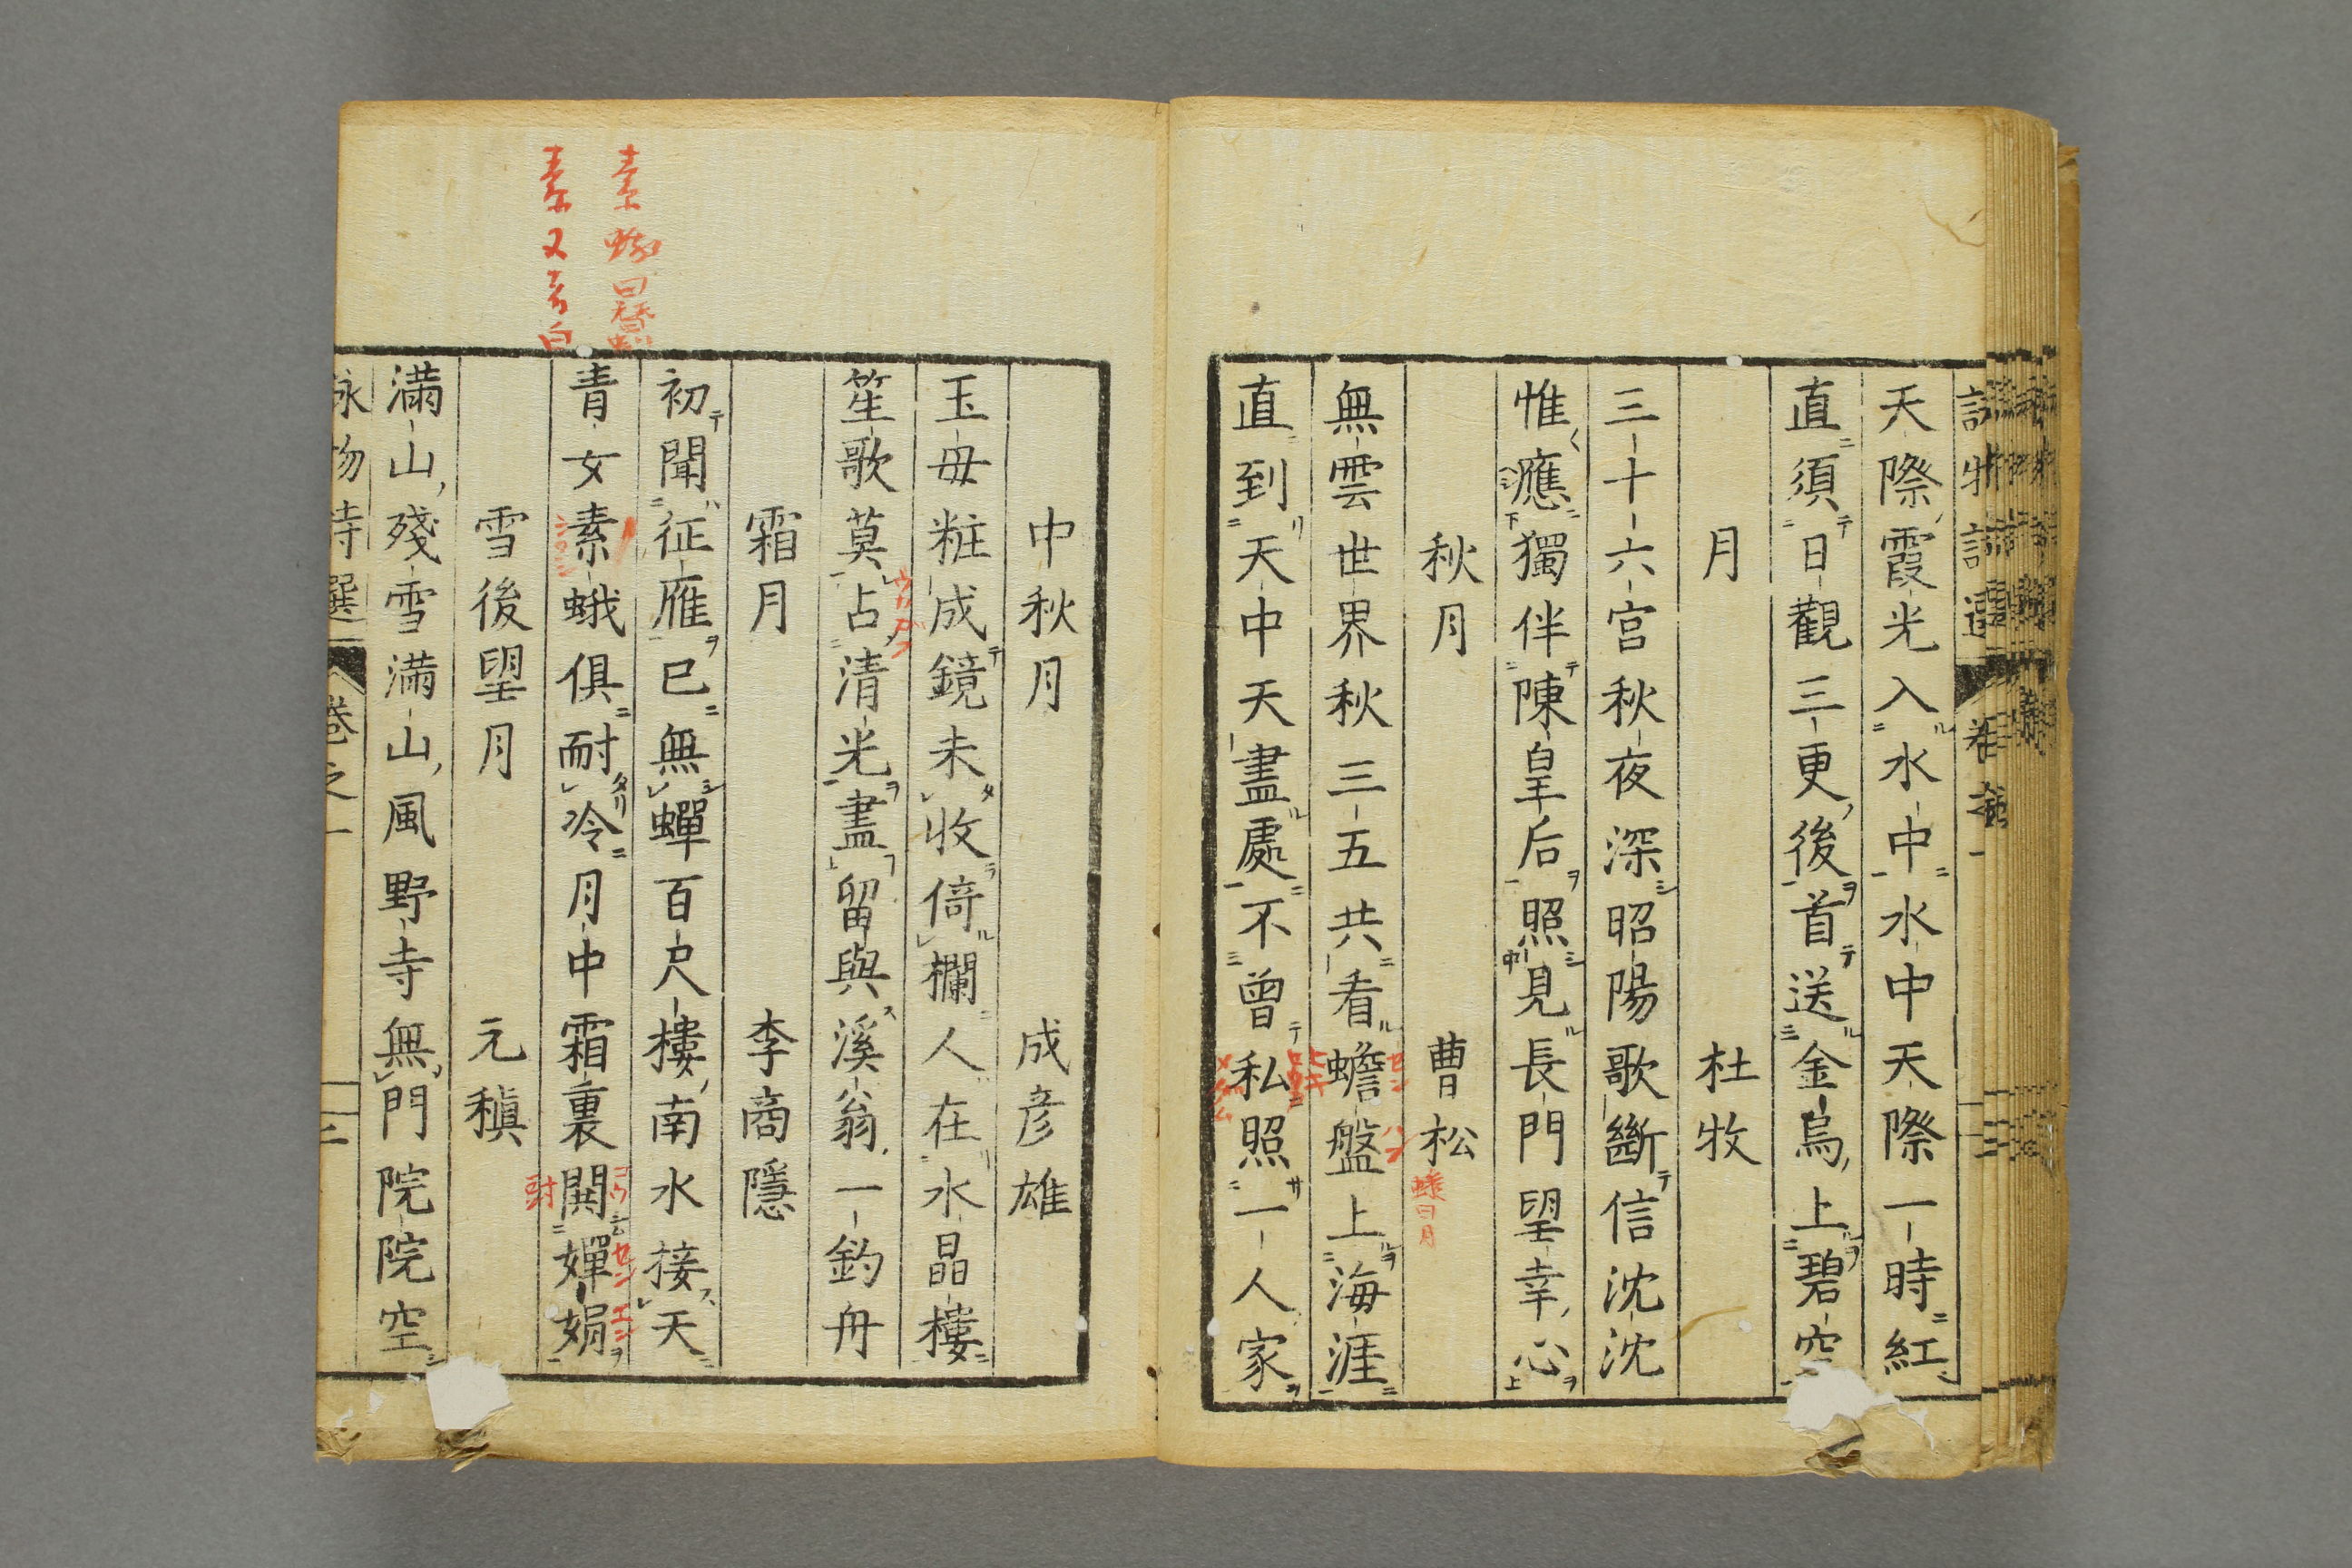 天際霞光入水中水中天際一時紅
直須日觀三更後首送金烏上碧空
月　杜牧
三十六宮秋夜深昭陽歌斷信沈沈
惟應獨伴陳皇后照見長門望幸心
秋月　曹松
蟾曰月
無雲世界秋三五共看蟾盤上海涯
直到天中天盡處不曾私照一人家
中秋月　成彦雄
玉毋粧成鏡未收倚欄人在水晶樓
笙歌莫占清光盡留與溪翁一釣舟
霜月　李商隱
初聞征雁已無蟬百尺樓南水接天
青女素蛾俱耐冷月中霜裏鬭嬋娟
雪後望月　元稹
滿山殘雪滿山風野寺無門院院空
詠物詩選　卷之一